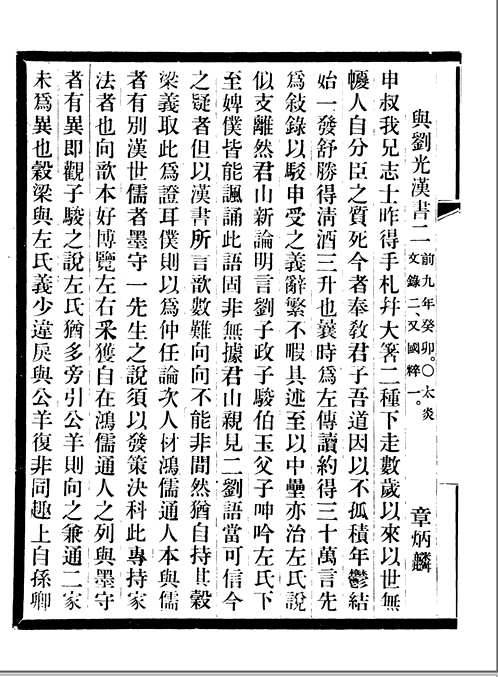 與劉光漢書二 前九年癸卯。○太炎文錄二、又國粹一。 章炳麟
申叔我兄志士昨得手札幷大箸二種下走數歲以來以世無
懮人自分臣之質死今者奉敎君子吾道因以不孤積年鬱結
始一發舒勝得淸酒三升也曩時爲左傳讀約得三十萬言先
爲敍錄以駁申受之義辭繁不暇具述至以中壘亦治左氏說
似支離然君山新論明言劉子政子駿伯玉父子呻吟左氏下
至婢僕皆能諷誦此語固非無據君山親見二劉語當可信今
之疑者但以漢書所言歆數難向向不能非間然猶自持其穀
梁義取此爲證耳僕則以爲仲任論次人材鴻儒通人本與儒
者有別漢世儒者墨守一先生之說須以發策決科此專持家
法者也向歆本好博覽左右采獲自在鴻儒通人之列與墨守
者有異卽觀子駿之說左氏猶多旁引公羊則向之兼通二家
未爲異也穀梁與左氏義少違戾與公羊復非同趣上自孫卿